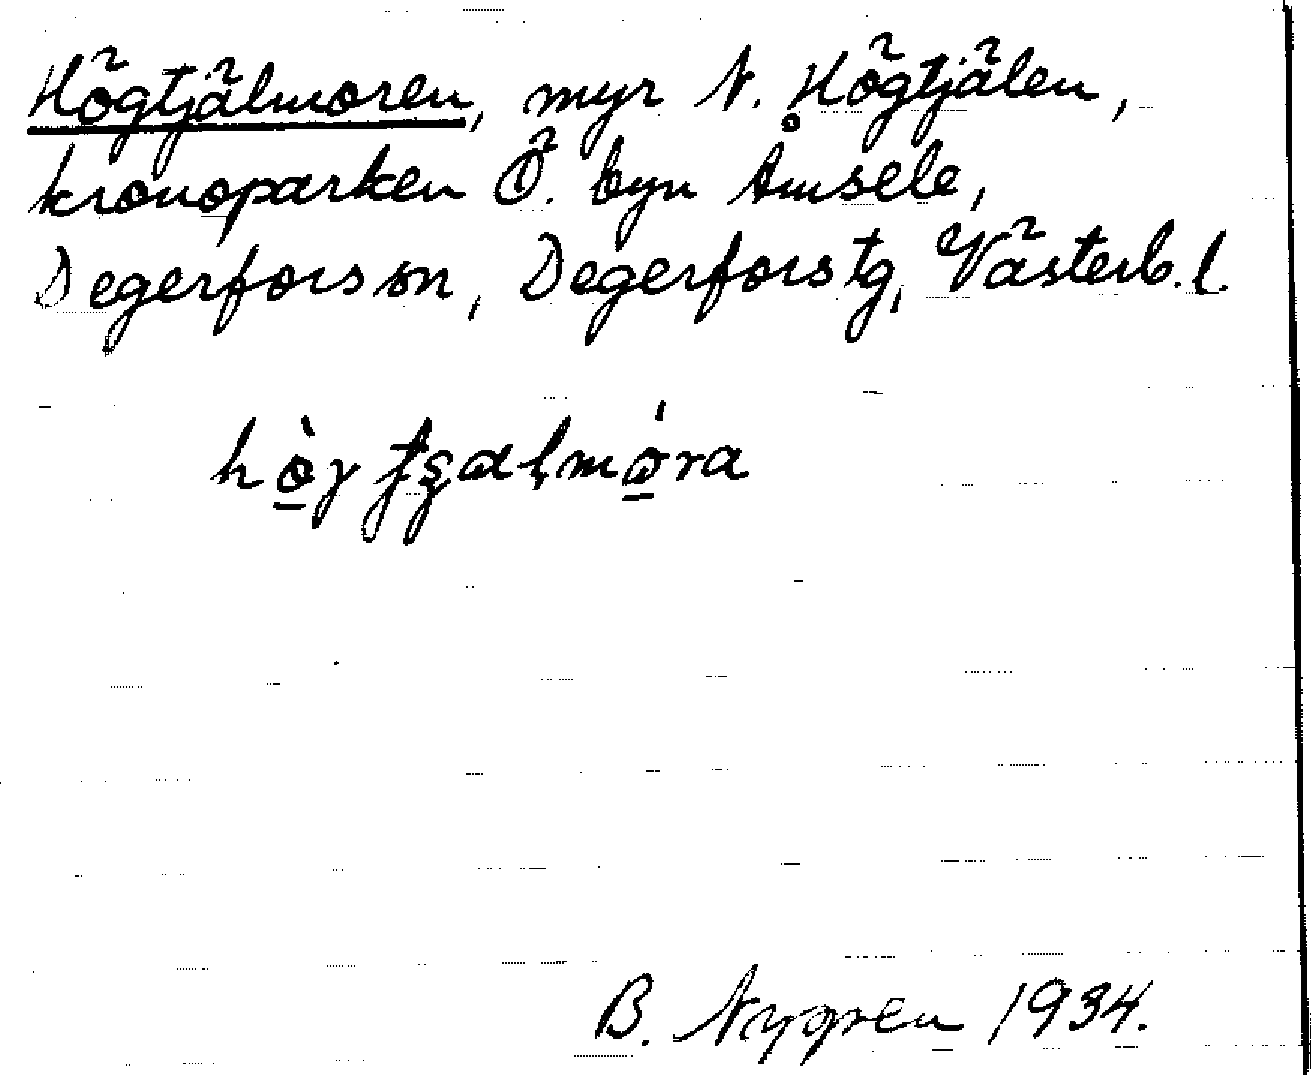 Högtjälmoren, myr N. Högtjälen,
kronoparken Ö. byn Åmsele,
Degerfors sn, Degerfors tg, Västerb. l.
B. Nygren 1934.